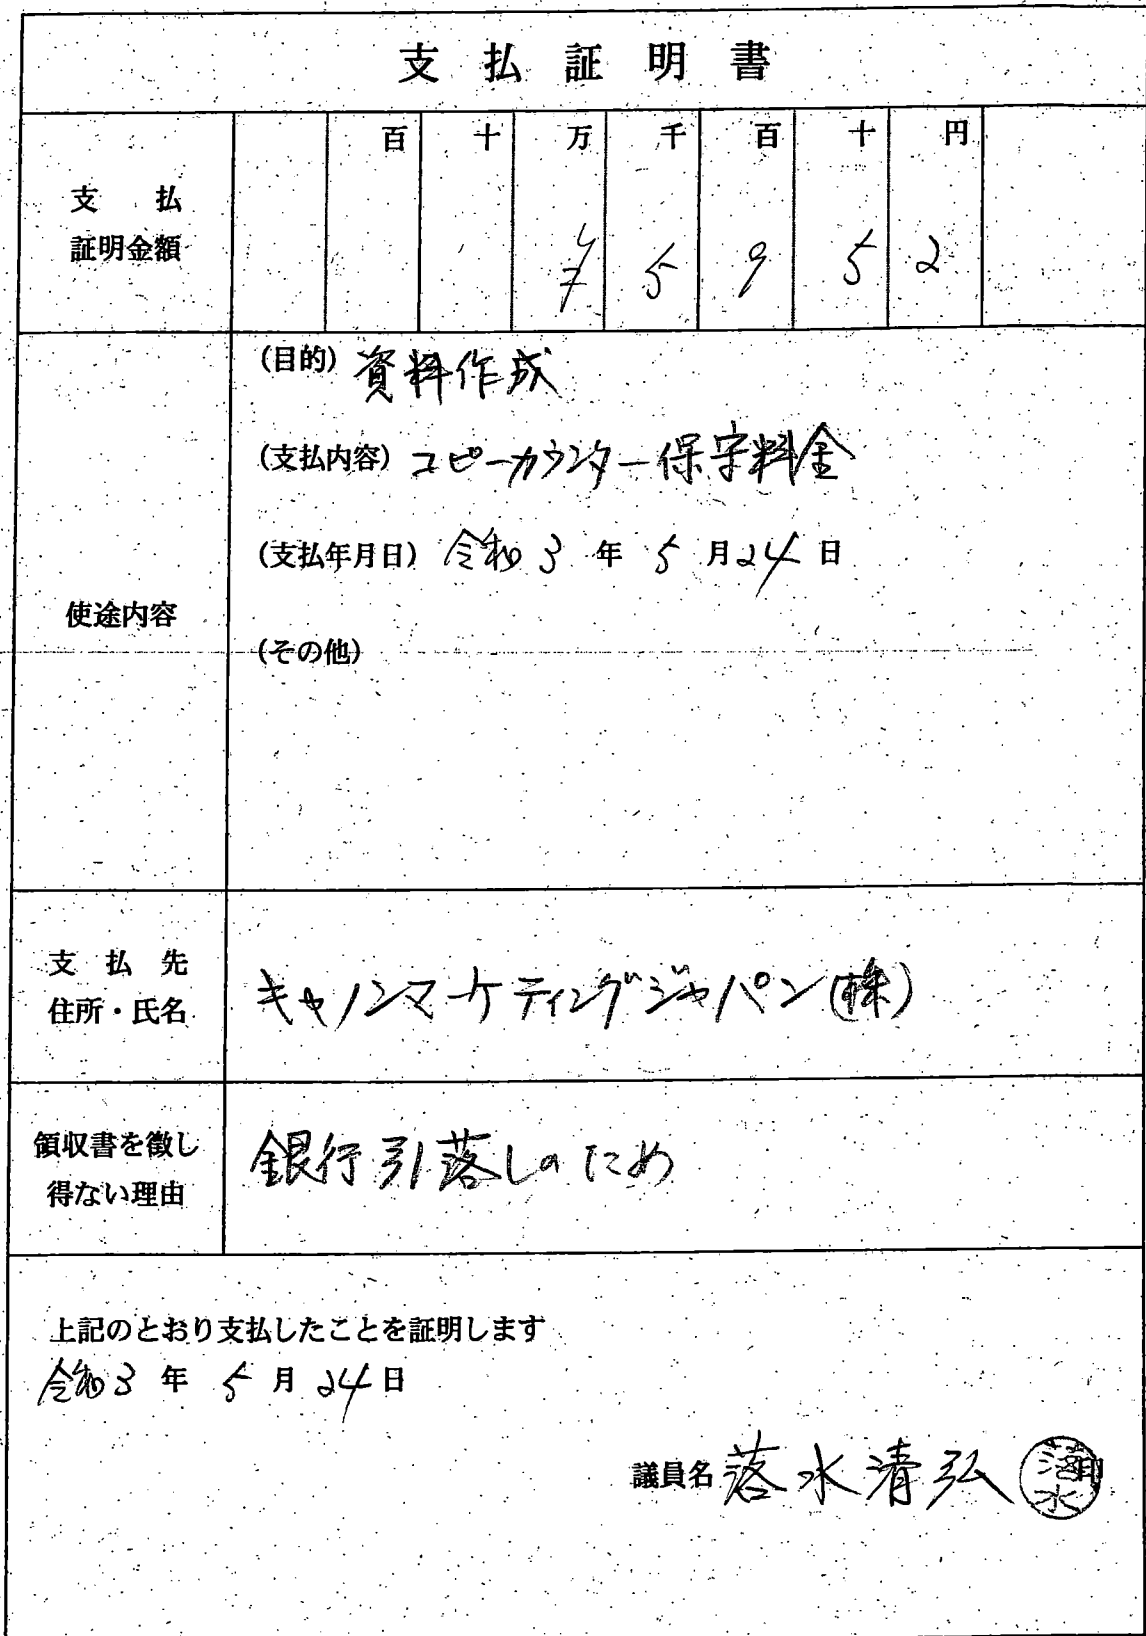 支払証明書
百 十 万 千 百 十 円
支払
証明金額
¥ 5 9 5 2
使途内容
(目的) 資料作成
(支払内容) コピーカウンター保守料金
(支払年月日) 令和3年5月24日
(その他)
支払先
住所・氏名
キヤノンマーケティングジャパン(株)
領収書を徴し
得ない理由
銀行引落しのため
上記のとおり支払したことを証明します
令和3年5月24日
議員名 落水清弘 印
落水